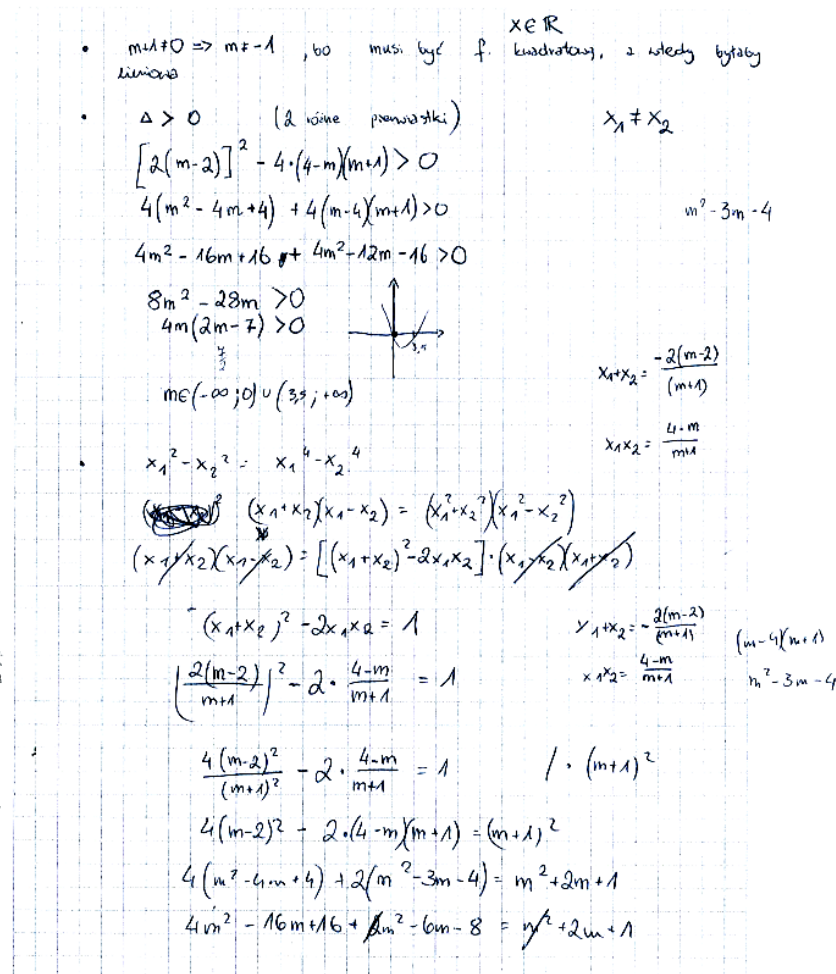 x ∈ ℝ
• m+1≠0 => m≠-1 , bo musi być f. kwadratowa, a wtedy byłaby
liniowa
• Δ > 0 (2 różne pierwiastki) x₁ ≠ x₂
[2(m-2)]² - 4·(4-m)(m+1) > 0
4(m² - 4m+4) + 4(m-4)(m+1)>0 m²-3m-4
4m² - 16m+16 + 4m²-12m-16 >0
8m² - 28m >0
4m(2m-7) >0
7/2
3,5
m∈(-∞;0)∪(3,5;+∞) x₁+x₂ = -2(m-2)/(m+1)
x₁x₂ = 4-m/m+1
• x₁²-x₂² = x₁⁴-x₂⁴
(x₁+x₂)(x₁-x₂) = (x₁²+x₂²)(x₁²-x₂²)
(x₁+x₂)(x₁-x₂) = [(x₁+x₂)²-2x₁x₂]·(x₁-x₂)(x₁+x₂)
(x₁+x₂)² -2x₁x₂ = 1 x₁+x₂ = -2(m-2)/(m+1) (m-4)(m+1)
(2(m-2)/m+1)² - 2· 4-m/m+1 = 1 x₁x₂ = 4-m/m+1 m²-3m-4
4(m-2)²/(m+1)² - 2· 4-m/m+1 = 1 /·(m+1)²
4(m-2)² - 2·(4-m)(m+1) = (m+1)²
4(m²-4m+4) +2(m²-3m-4) = m²+2m+1
4m² - 16m+16 + 2m²-6m-8 = m²+2m+1